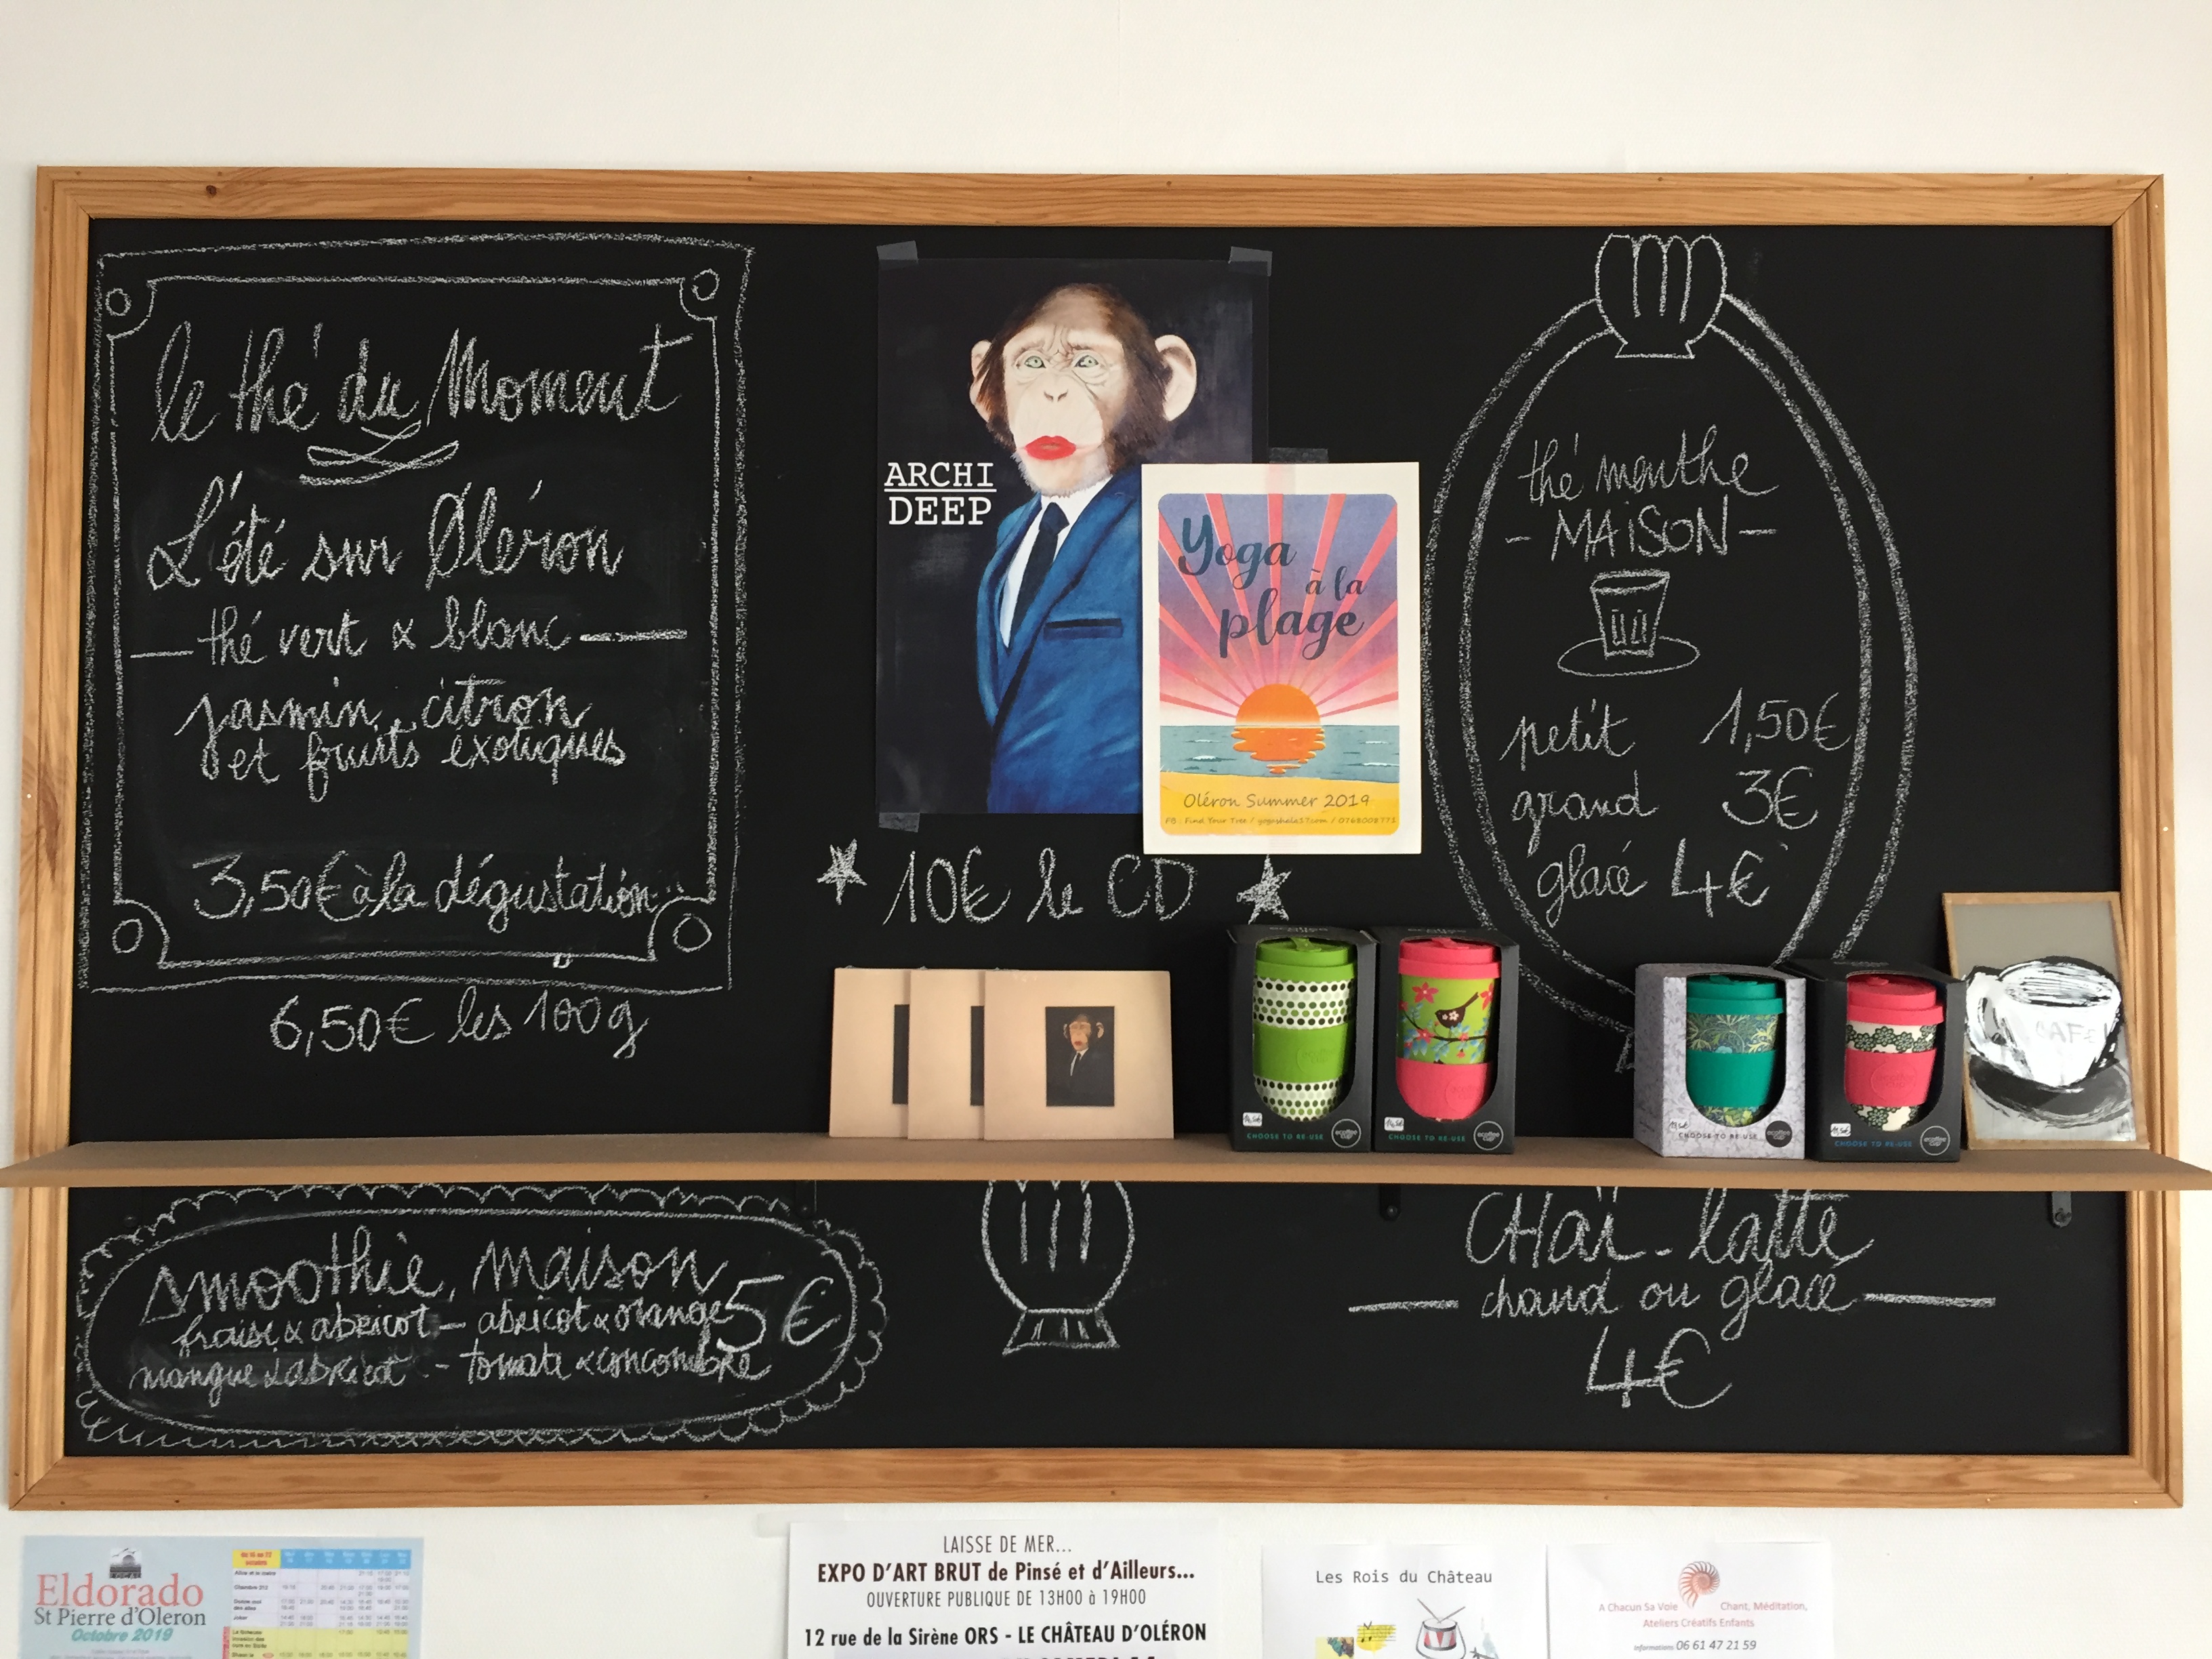 le thé du Moment
L'été sur Oléron
thé vert & blanc
jasmin, citron
et fruits éxotiques
3,50€ à la dégustation
6,50€ les 100g
ARCHI
DEEP
Yoga
à la
plage
Oléron Summer 2019
FB : Find Your Tree / yogashala17.com / 0768008771
10€ le CD
thé menthe
- MAiSON -
petit 1,50€
grand 3€
glacé 4€
CHOOSE TO RE-USE
ecoffee cup
CHOOSE TO RE-USE
ecoffee cup
CHOOSE TO RE-USE
ecoffee cup
CHOOSE TO RE-USE
ecoffee cup
CAFE
Smoothie, maison 5€
fraise & abricot - abricot & orange
mangue & abricot - tomate & concombre
CHaï - latte
chaud ou glacé
4€
Eldorado
St Pierre d'Oleron
Octobre 2019
LAISSE DE MER...
EXPO D'ART BRUT de Pinsé et d'Ailleurs...
OUVERTURE PUBLIQUE DE 13H00 à 19H00
12 rue de la Sirène ORS - LE CHÂTEAU D'OLÉRON
Les Rois du Château
A Chacun Sa Voie Chant, Méditation,
Ateliers Créatifs Enfants
informations 06 61 47 21 59